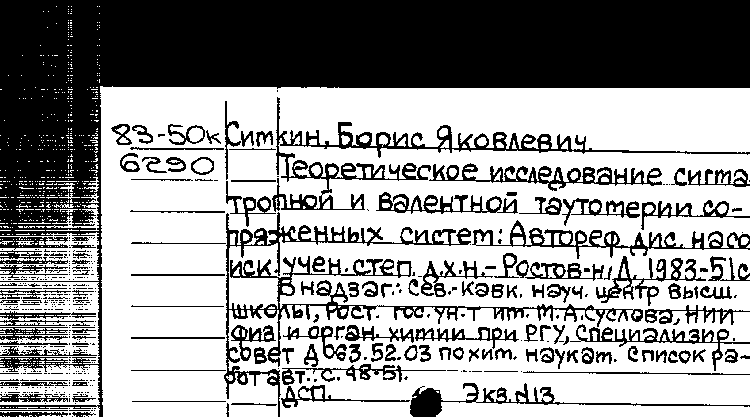 83-50к Ситкин, Борис Яковлевич.
6290 Теоретическое исследование сигма
тропной и валентной таутомерии со-
пряженных систем: Автореф. дис. на со
иск. учен. степ. д.х.н. - Ростов-н/Д, 1983-51с
В надзаг.: Сев.-Кавк. науч. центр высш.
школы, Рост. гос. ун-т им. М.А. Суслова, НИИ
физ. и орган. химии при РГУ, Специализир.
совет Д 063.52.03 по хим. наукам. Список ра-
бот авт.: с. 48-51.
ДСП. Экз. N13